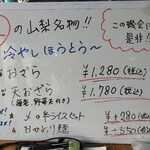 の山梨名物!!
この機会に
是非!!
冷やしほうとう〜
おざら
¥1.280(税込)
天おざら
¥1.780(税込)
(海老、野菜天付き)
〆の半ライスセット
¥+280(税込)
おかわり麺
¥+550(税込)